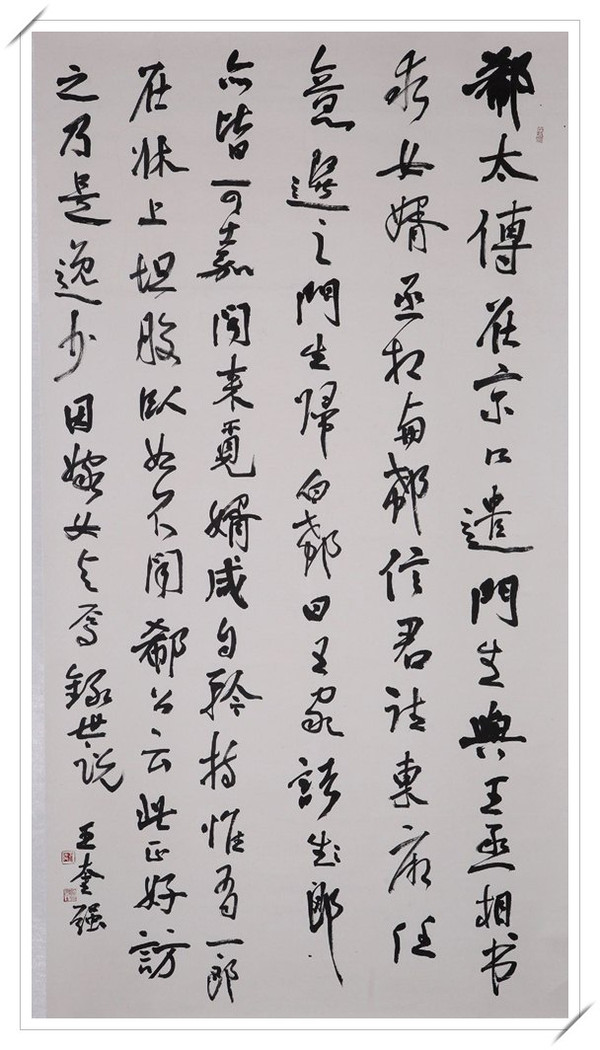 郗太傅在京口遣門生與王丞相书
求女婿丞相郗信君往東廂任
意選之門生歸白郗曰王家諸郎
亦皆可嘉聞来覓婿咸自矜持惟有一郎
在牀上坦腹臥如不聞郗公云此正好訪
之乃是逸少因嫁女与焉 錄世說
王奎强